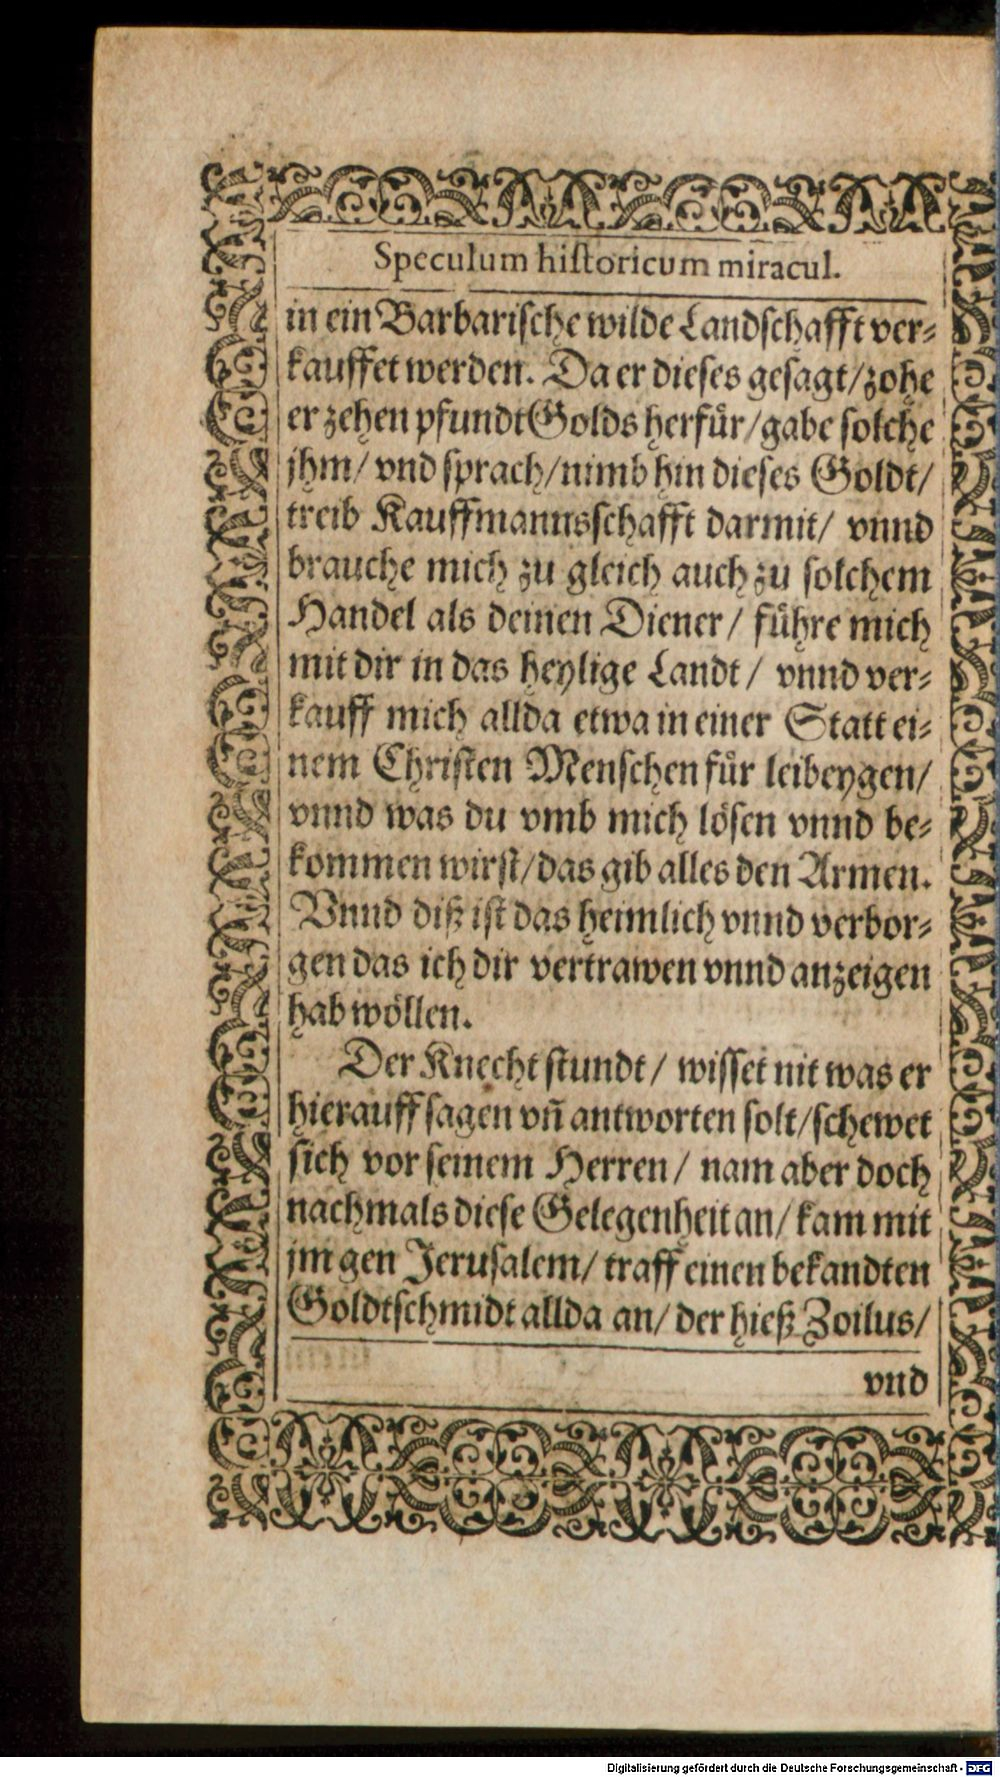 Speculum historicum miracul.
in ein Barbarische wilde Landschafft ver-
kauffet werden. Da er dieses gesagt/ zohe
er zehen pfundt Golds herfür/ gabe solche
jhm/ vnd sprach/ nimb hin dieses Goldt/
treib Kauffmannsschafft darmit/ vnnd
brauche mich zu gleich auch zu solchem
Handel als deinen Diener/ führe mich
mit dir in das heylige Landt/ vnnd ver-
kauff mich allda etwa in einer Statt ei-
nem Christen Menschen für leibeygen/
vnnd was du vmb mich lösen vnnd be-
kommen wirst/ das gib alles den Armen.
Vnnd diß ist das heimlich vnnd verbor-
gen das ich dir vertrawen vnnd anzeigen
hab wöllen.
Der Knecht stundt/ wisset nit was er
hierauff sagen vñ antworten solt/ schewet
sich vor seinem Herren/ nam aber doch
nachmals diese Gelegenheit an/ kam mit
jm gen Jerusalem/ traff einen bekandten
Goldtschmidt allda an/ der hieß Zoilus/
vnd
Digitalisierung gefördert durch die Deutsche Forschungsgemeinschaft - DFG